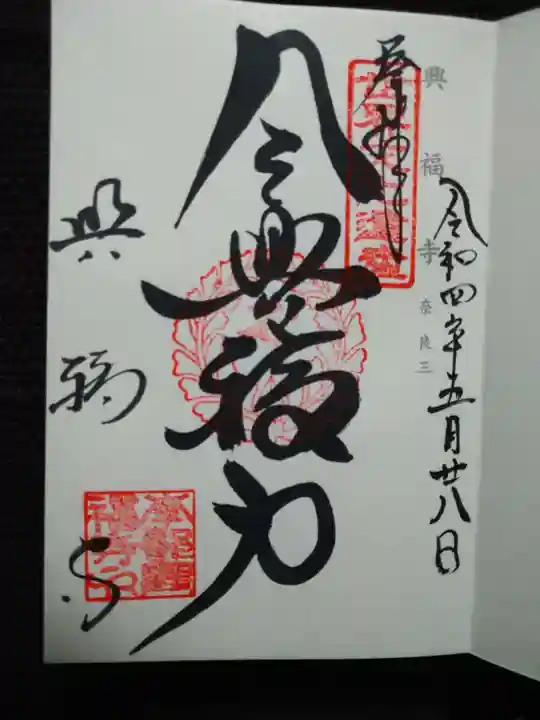 令和四年五月廿八日
興福寺 奈良三
奉拝
令興福力
興福寺